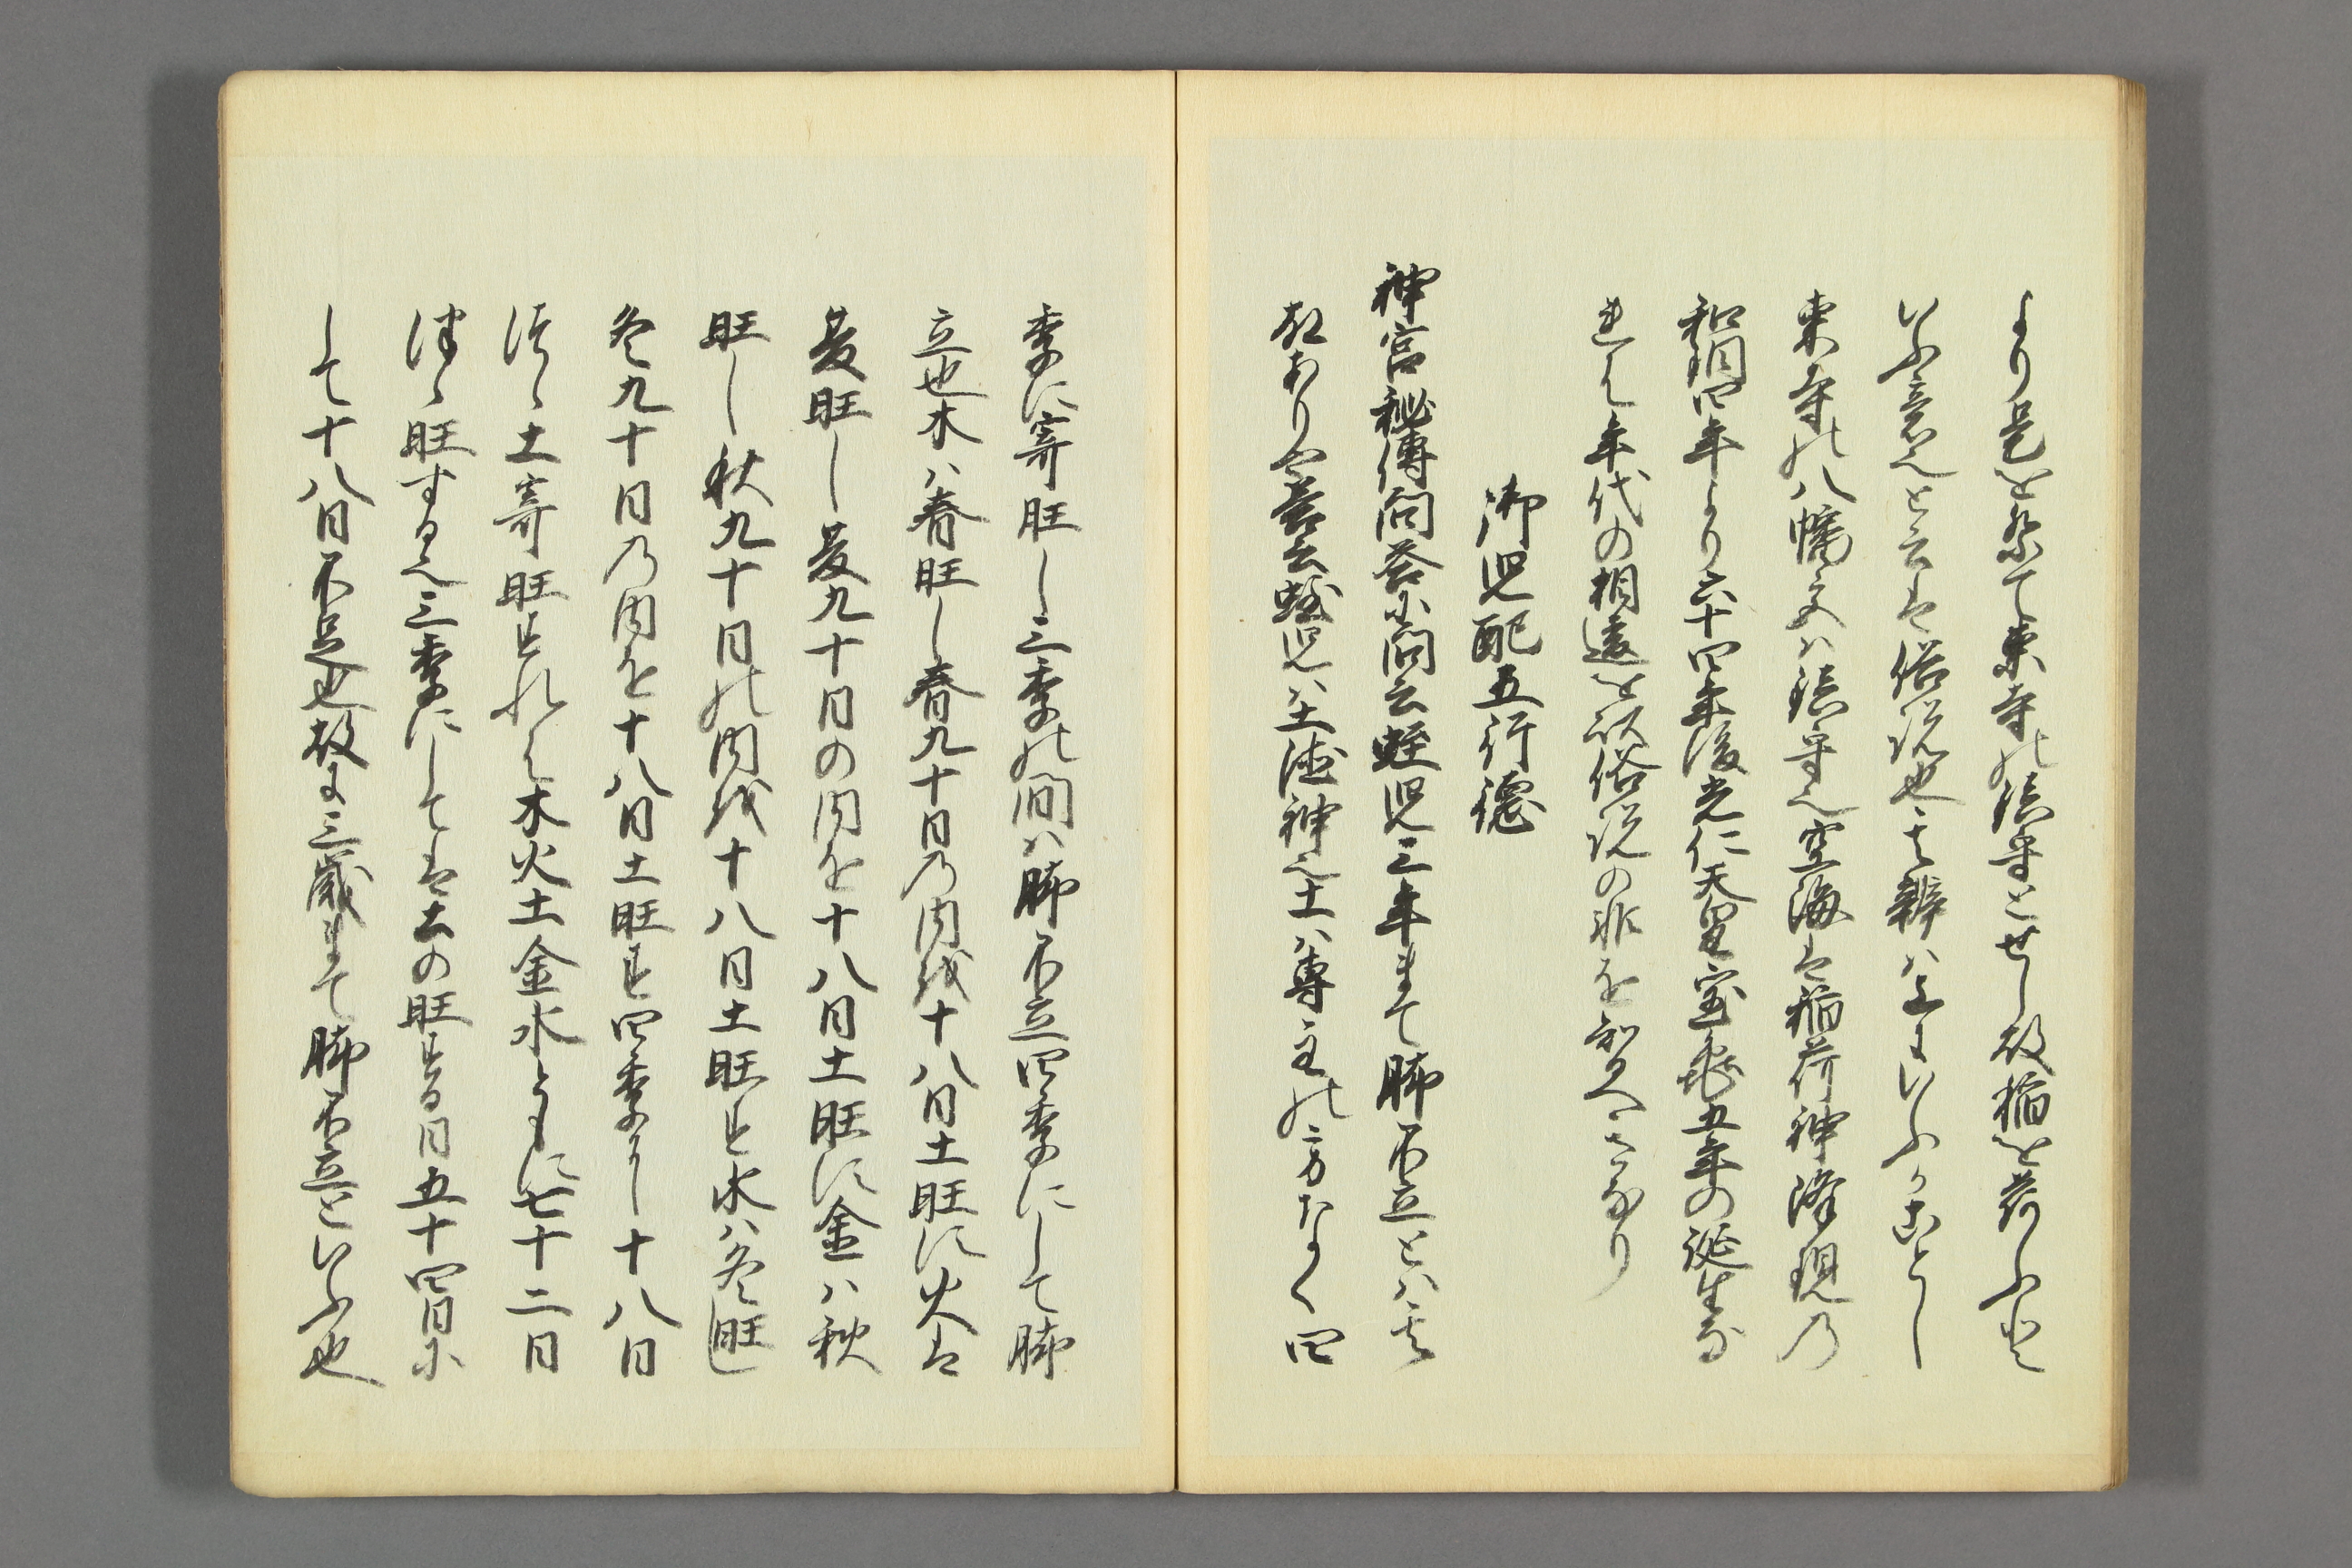 より是を祭て東寺の鎮守とせし故稲を荷ふと
いふ意也と云は俗説也其辨は上にいふかことし
東寺の八幡宮ハ鎮守也空海は稲荷神降現の
和銅四年より六十四年後光仁天皇宝亀五年の誕生な
れは年代の相違を以俗説の非を知へきなり
御児配五行徳
神宮秘傳問荅に問云蛭児三年まて脚不立とハ其
故ありや荅云蛭児ハ土徳神也土ハ専主の方なく四
季に寄旺し三季の間ハ脚不立四季にして脚
立也木ハ春旺し春九十日乃内後十八日土旺す火は
夏旺し夏九十日の内を十八日土旺す金ハ秋
旺し秋九十日の内後十八日土旺す水ハ冬旺し
冬九十日乃内を十八日土旺す四季に十八日
つゝ土寄旺すれは木火土金水ともに七十二日
つゝ旺する也三季にしては土の旺する日五十四日に
して十八日不足也故に三歳まて脚不立といふ也